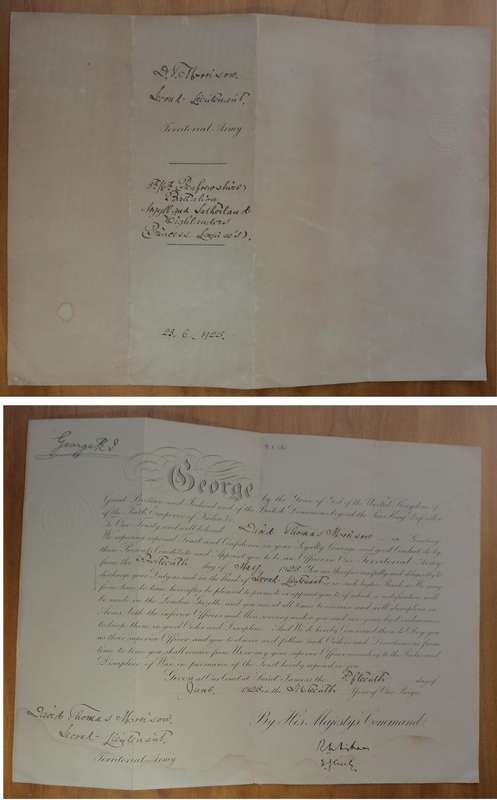 D.T. Morrison.
Second Lieutenant,
Territorial Army
5/6th (Renfrewshire)
Battalion
Argyll and Sutherland
Highlanders
(Princess Louise's).
23. 6. 1925.
George R. I
George by the Grace of God of the United Kingdom of
Great Britain and Ireland and of the British Dominions beyond the Seas King, Defender
of the Faith, Emperor of India &c.
To Our Trusty and well beloved David Thomas Morrison Greeting
We reposing especial Trust and Confidence in your Loyalty, Courage, and good Conduct, do by
these Presents Constitute and Appoint you to be an Officer in Our Territorial Army
from the day of May 1925. You are therefore carefully and diligently to
discharge your Duty as such in the Rank of Second Lieutenant or in such higher Rank as We may
from time to time hereafter be pleased to promote or appoint you to of which a notification will
be made in the London Gazette, and you are at all times to exercise and well discipline in
Arms both the inferior Officers and Men serving under you and use your best endeavours
to keep them in good Order and Discipline. And We do hereby Command them to Obey you
as their superior Officer and you to observe and follow such Orders and Directions as from
time to time you shall receive from Us, or any your superior Officer according to the Rules and
Discipline of War, in pursuance of the Trust hereby reposed in you.
Given at Our Court at Saint James's the Fifteenth day of
June 1925 in the Sixteenth Year of Our Reign
By His Majesty's Command.
David Thomas Morrison.
Second Lieutenant.
Territorial Army